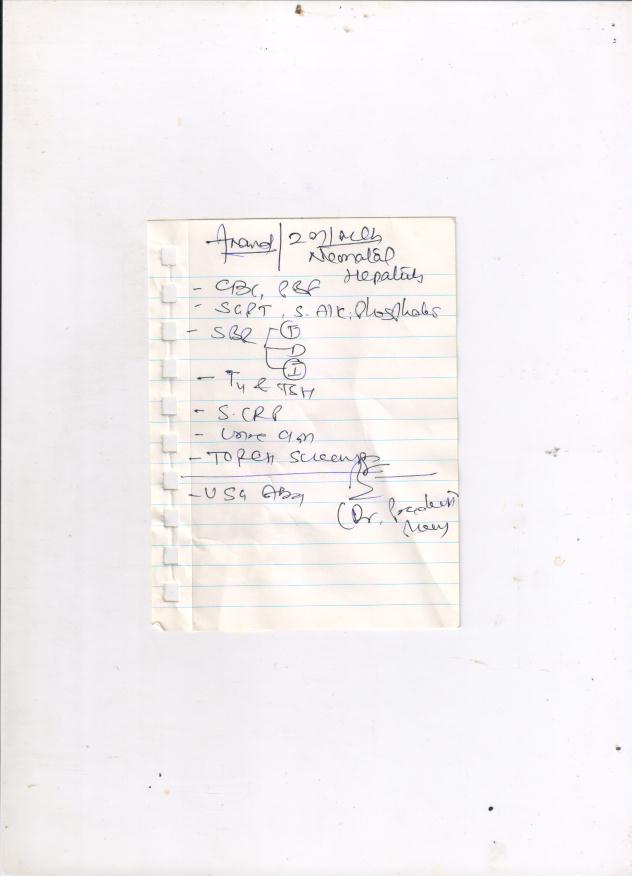 Anand / 20/Mch
Neonatal
Hepatitis
- CBC, PBF
- SGPT, S. Alk. Phosphates
- SBR T
D
I
- T4 & TSH
- S. CRP
- Urine
- TORCH Screening
- USG
(Dr.